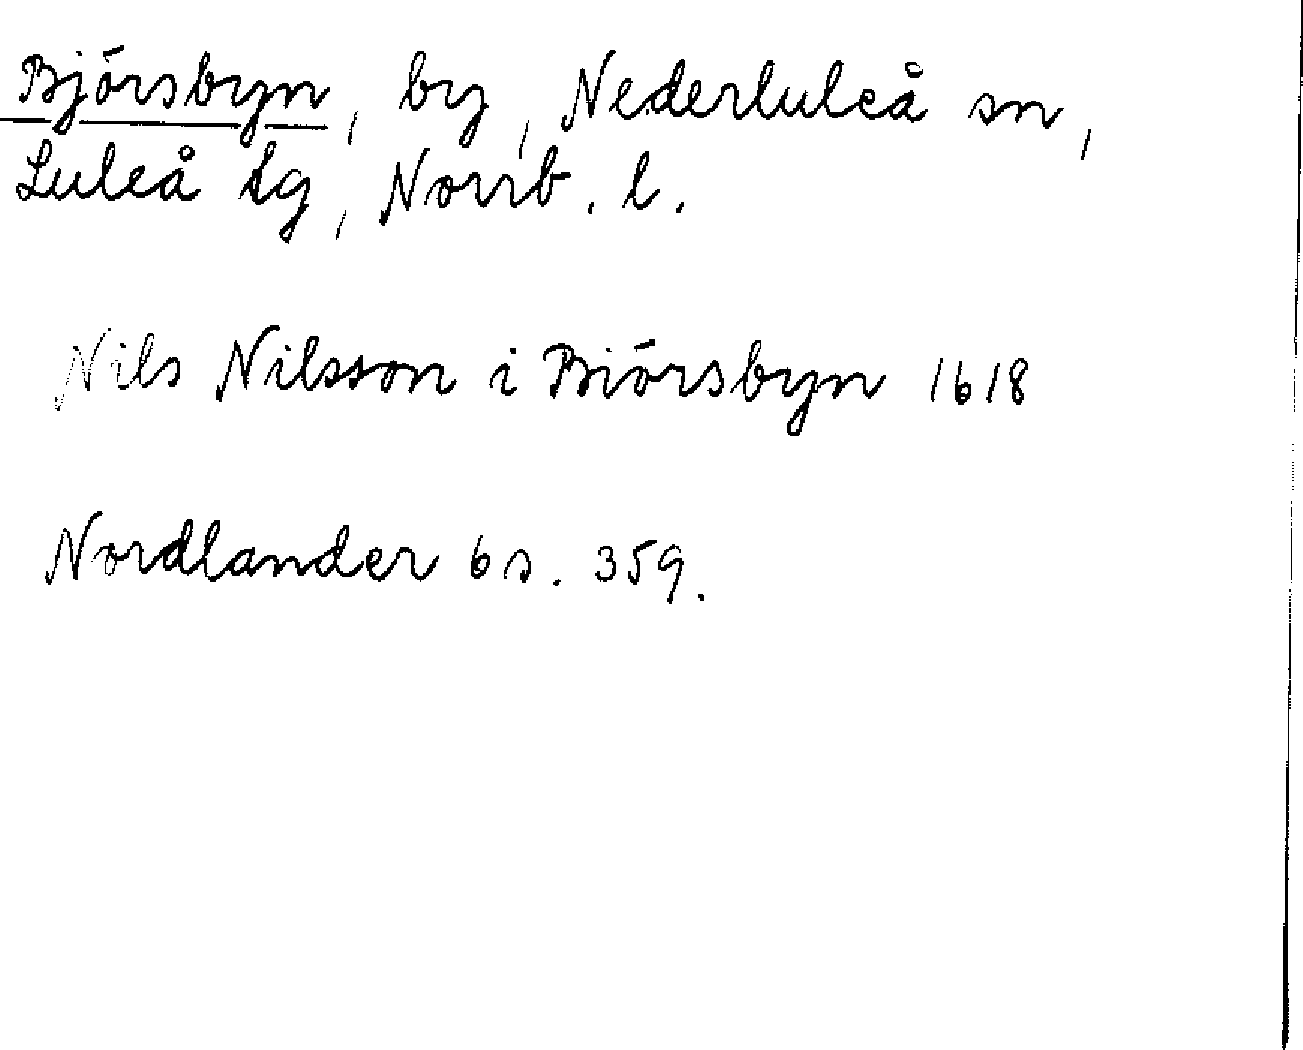 Björsbyn, by, Nederluleå sn,
Luleå tg, Norrb. l.
Nils Nilsson i Biörsbyn 1618
Nordlander 6 s. 359.